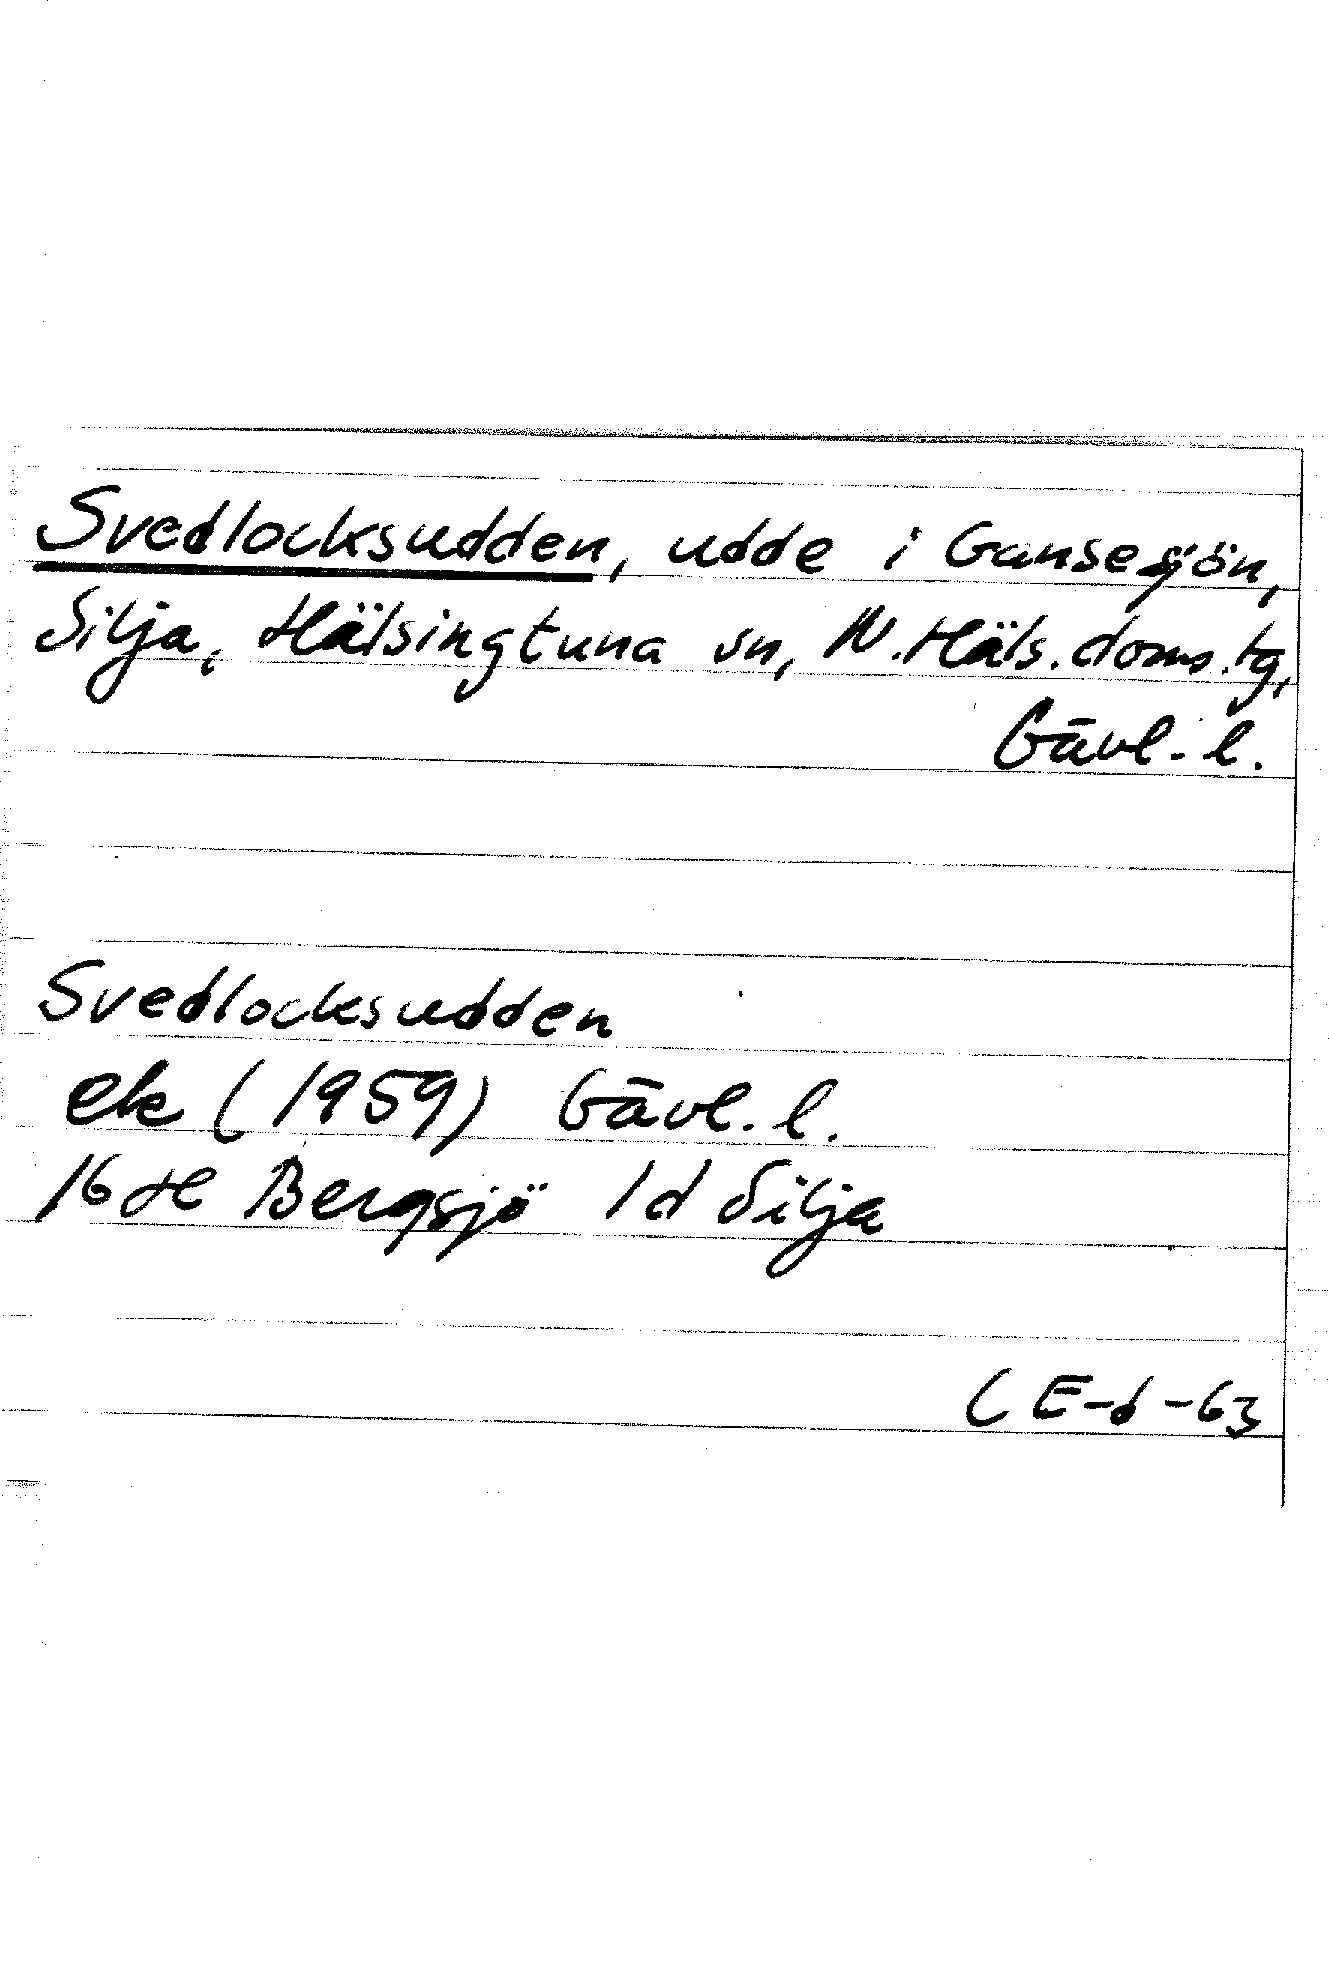 Svedlocksudden, udde i Gansesjön,
Silja, Hälsingtuna sn, N.Häls.doms.tg,
Gävl. l.
Svedlocksudden
ek (1959) Gävl. l.
16 H Bergsjö 1d Silja
CE-d-63